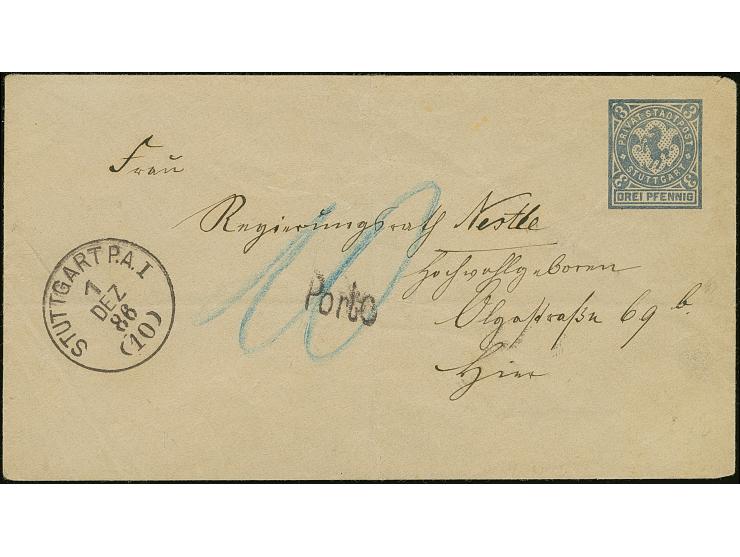 3 3
PRIVAT-STADTPOST
STUTTGART
3 3
DREI PFENNIG
Frau
Regierungsrath Nestle
Hochwohlgeboren
Olgastraße 69 b.
Hier
10
Porto
STUTTGART P.A.I
1
DEZ
86
(10)